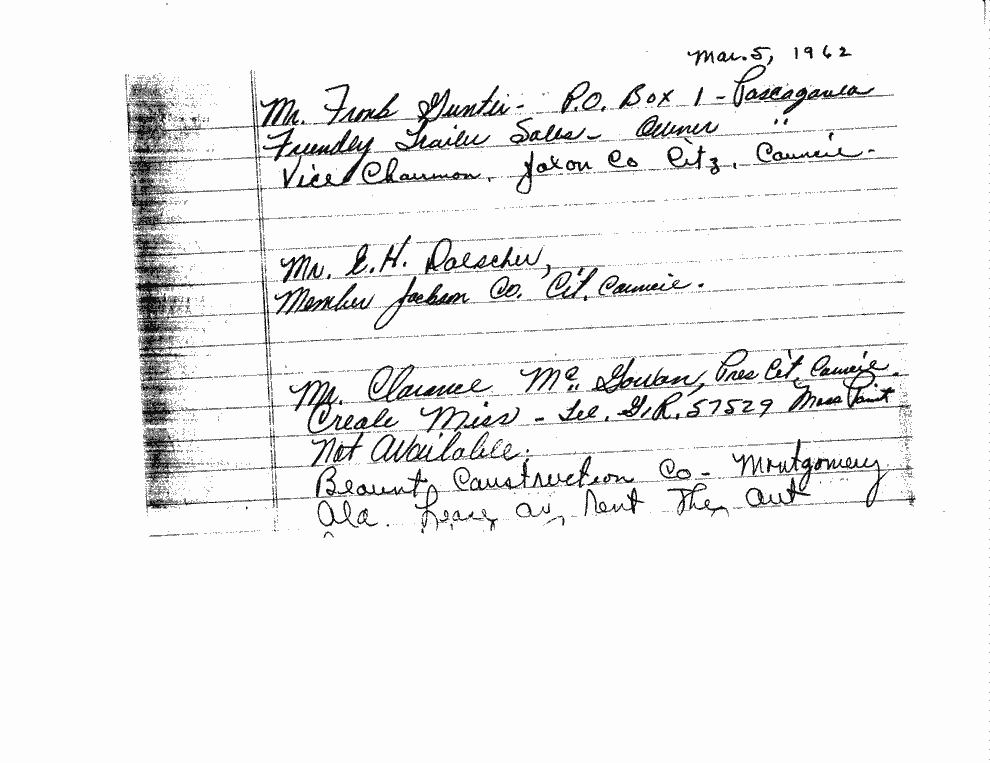 Mar. 5, 1962
Mr. Frank Gunter - P.O. Box 1 - Pascagoula
Friendly Trailer Sales - Owner "
Vice Chairman, Jaxon Co Citz, Council -
Mr. E.H. Doescher,
Member Jackson Co. Cit. Council.
Mr. Clarence Mc Gowan, Pres Cit. Council.
Creole Miss - Tel. G.R. 57529 Moss Point
Not Available.
Construction Co - Montgomery
Ala. Lease or, Rent Them out